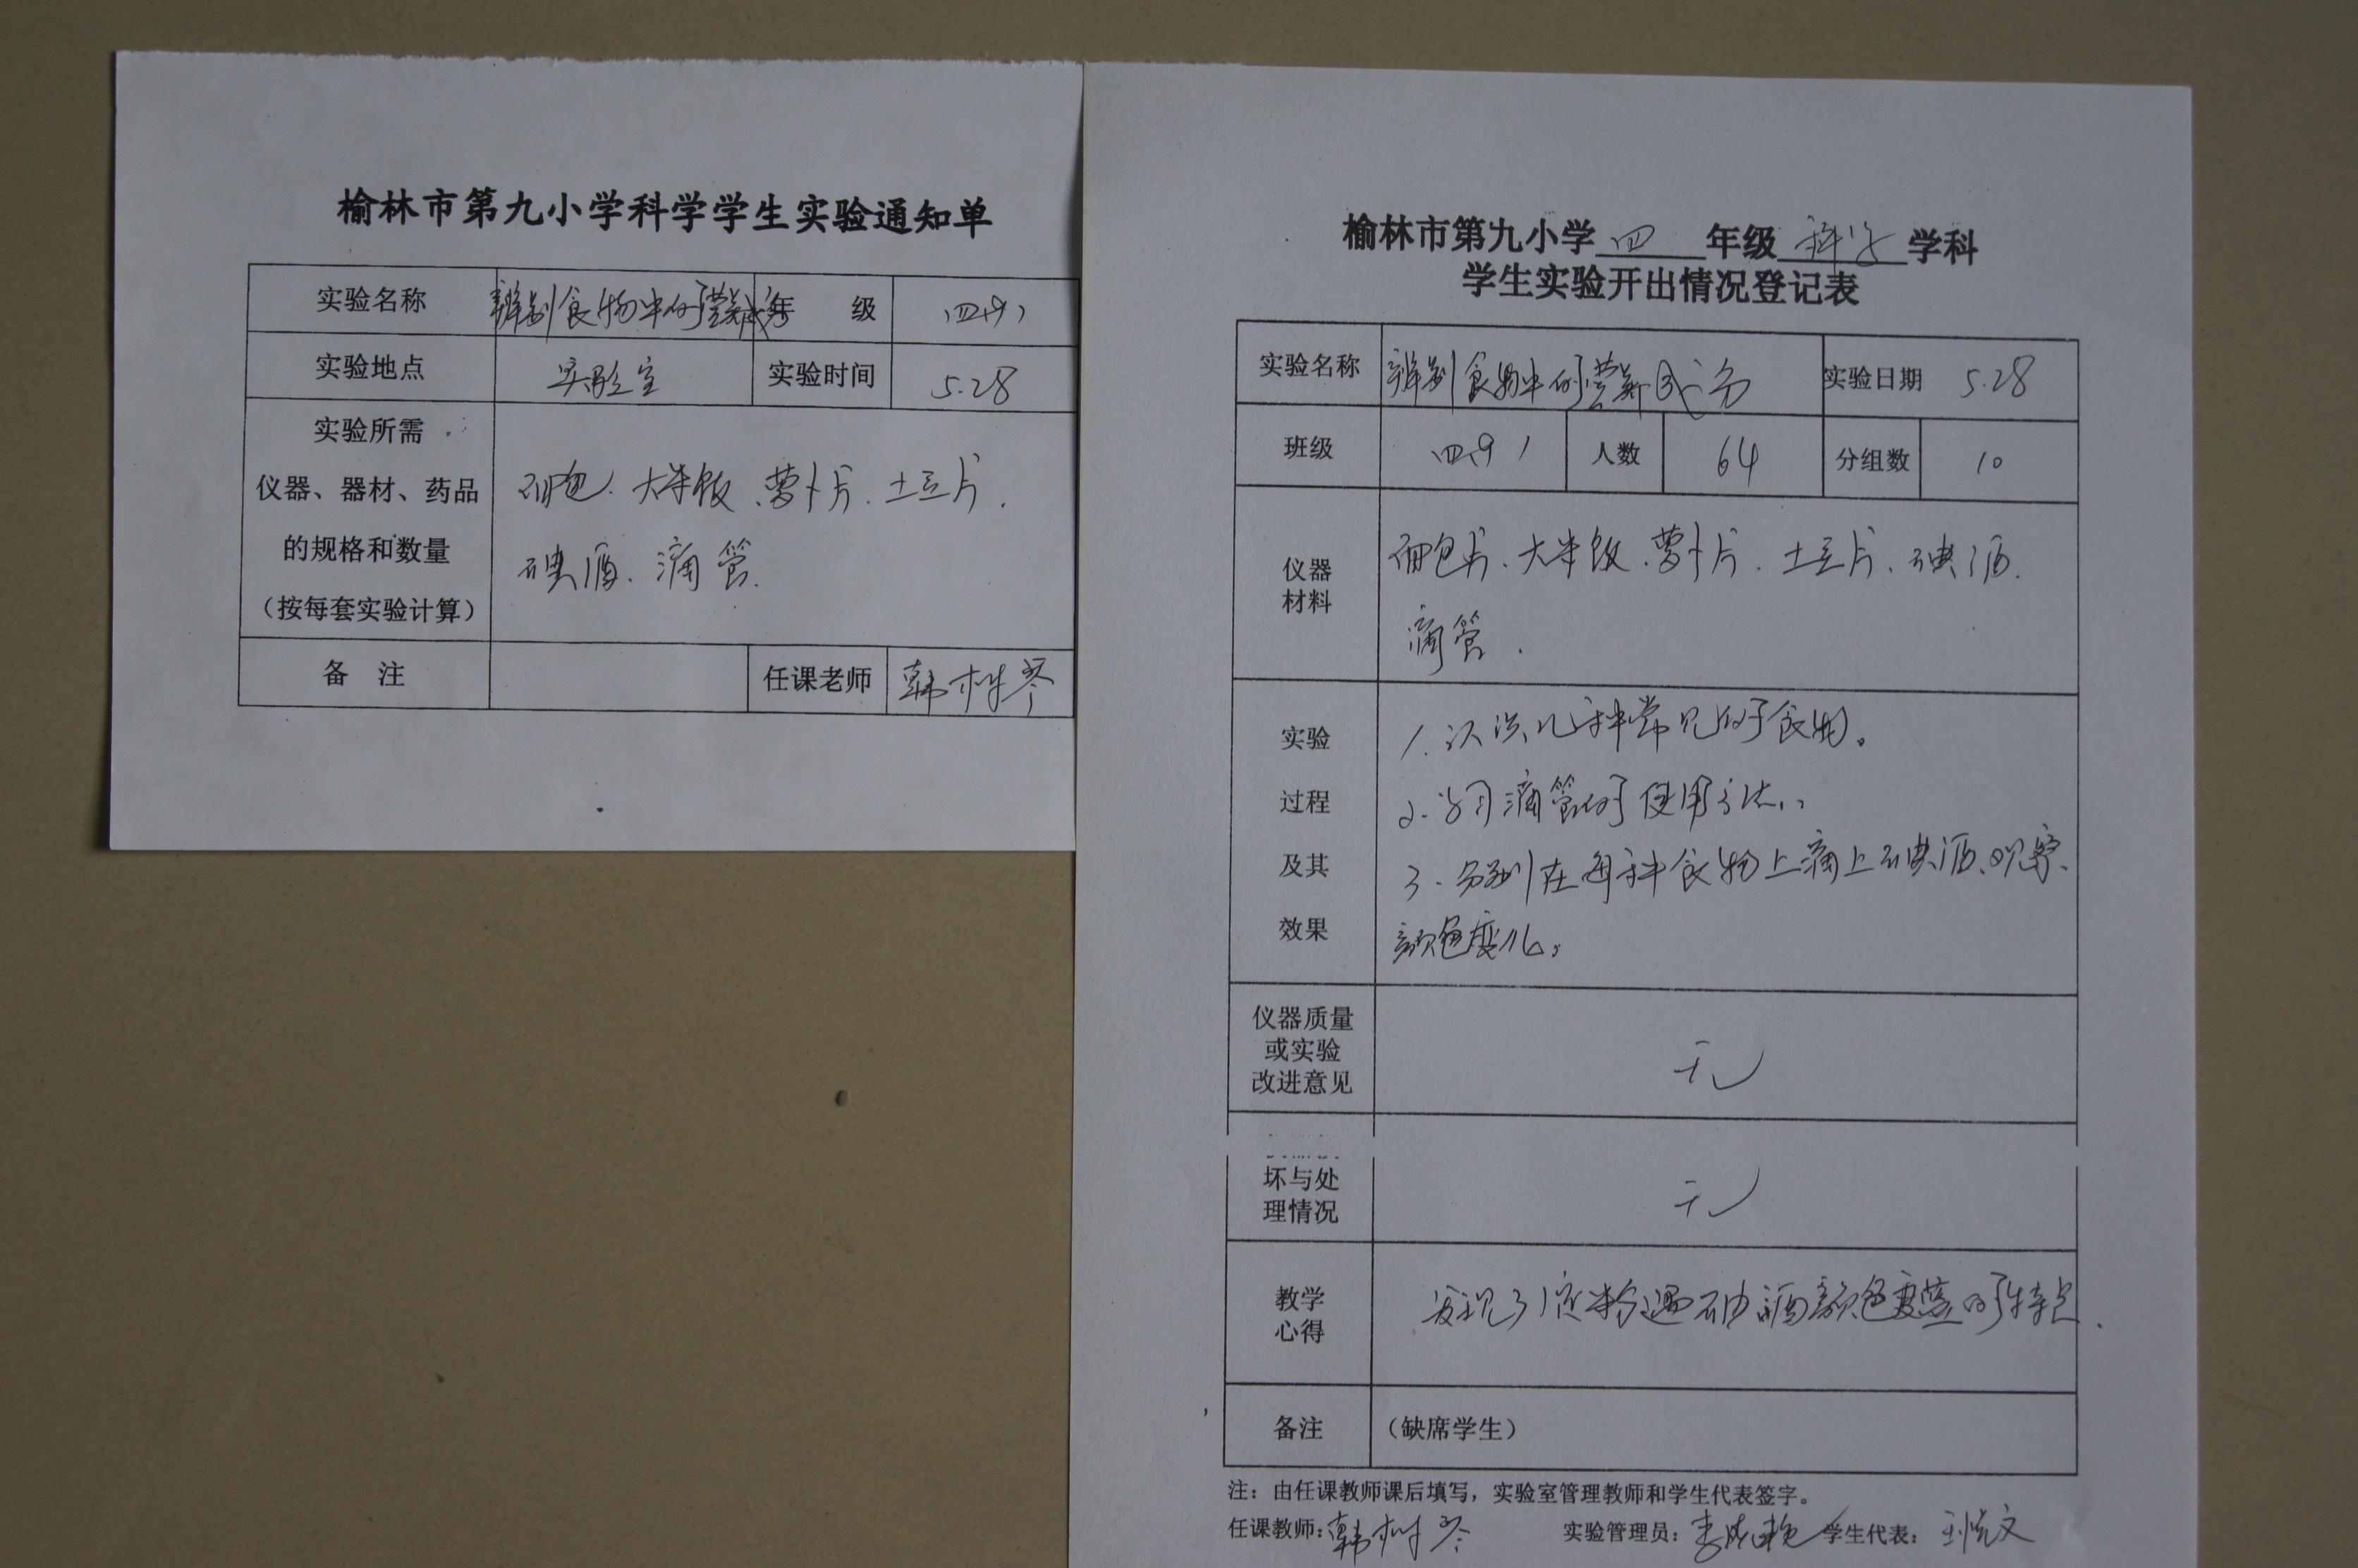 榆林市第九小学科学学生实验通知单
实验名称 辨别食物中的营养成分 年 级 四、9
实验地点 实验室 实验时间 5.28
实验所需
仪器、器材、药品
的规格和数量
(按每套实验计算)
面包、大米饭、萝卜片、土豆片、
碘酒、滴管、
备 注 任课老师 韩树琴
榆林市第九小学 四 年级 科学 学科
学生实验开出情况登记表
实验名称 辨别食物中的营养成分 实验日期 5.28
班级 四、9 人数 64 分组数 10
仪器
材料
面包片、大米饭、萝卜片、土豆片、碘酒、
滴管.
实验
过程
及其
效果
1. 认识几种常见的食物。
2. 学习滴管的使用方法、
3. 分别在每种食物上滴上碘酒、观察、
颜色变化。
仪器质量
或实验
改进意见
无
坏与处
理情况
无
教学
心得
发现了淀粉遇碘酒颜色变蓝的特点.
备注 (缺席学生)
注：由任课教师课后填写，实验室管理教师和学生代表签字。
任课教师: 韩树琴 实验管理员: 李 艳 学生代表: 文